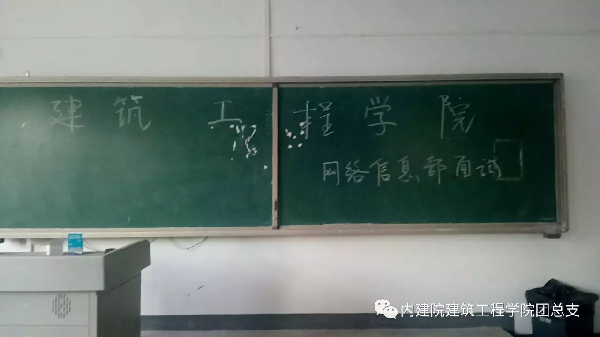 建筑工程学院
网络信息部面试
内建院建筑工程学院团总支